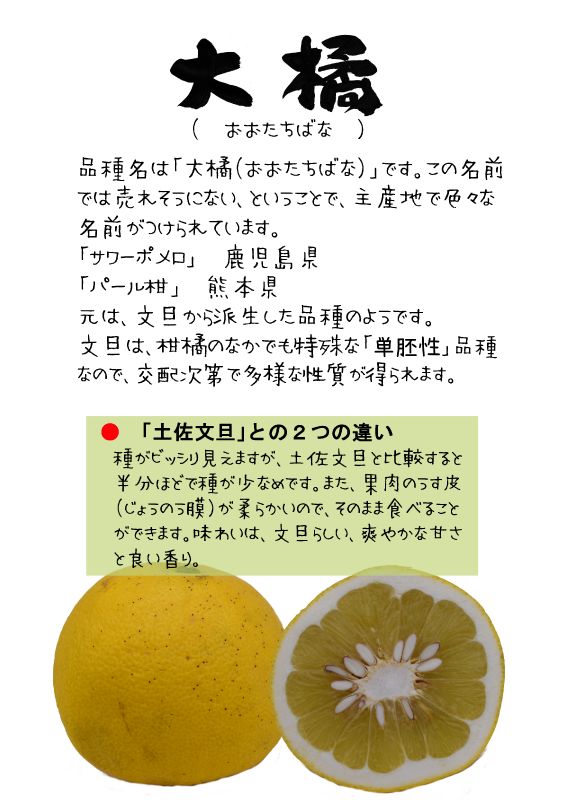 大橘
( おおたちばな )
品種名は「大橘(おおたちばな)」です。この名前
では売れそうにない、ということで、主産地で色々な
名前がつけられています。
「サワーポメロ」 鹿児島県
「パール柑」 熊本県
元は、文旦から派生した品種のようです。
文旦は、柑橘のなかでも特殊な「単胚性」品種
なので、交配次第で多様な性質が得られます。
● 「土佐文旦」との2つの違い
種がビッシリ見えますが、土佐文旦と比較すると
半分ほどで種が少なめです。また、果肉のうす皮
(じょうのう膜)が柔らかいので、そのまま食べること
ができます。味わいは、文旦らしい、爽やかな甘さ
と良い香り。